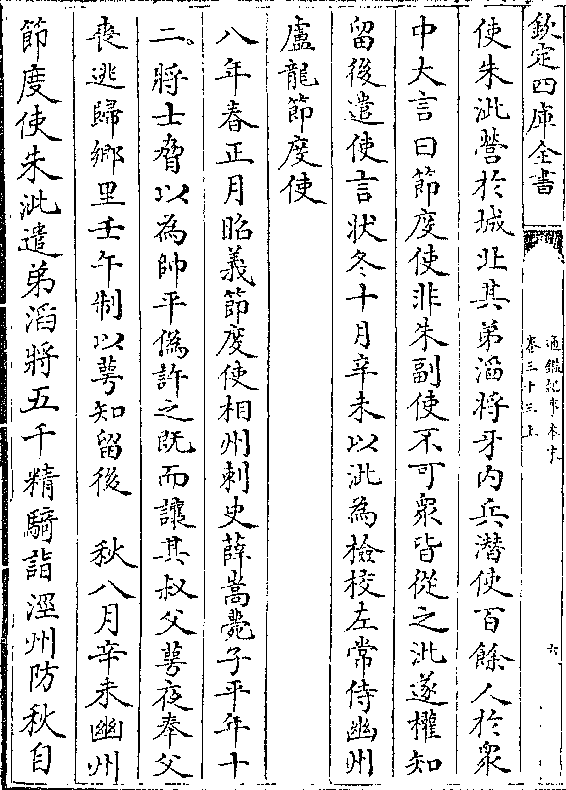 欽定四庫全書
通鑑紀事本末
卷三十三上
六
使朱泚營於城北其弟滔將牙內兵潛使百餘人於衆
中大言曰節度使非朱副使不可衆皆從之泚遂權知
留後遣使言狀冬十月辛未以泚為檢校左常侍幽州
盧龍節度使
八年春正月昭義節度使相州刺史薛嵩薨子平年十
二將士脅以為帥平偽許之既而讓其叔父蕚夜奉父
喪逃歸鄉里壬午制以蕚知留後　秋八月辛未幽州
節度使朱泚遣弟滔將五千精騎詣涇州防秋自